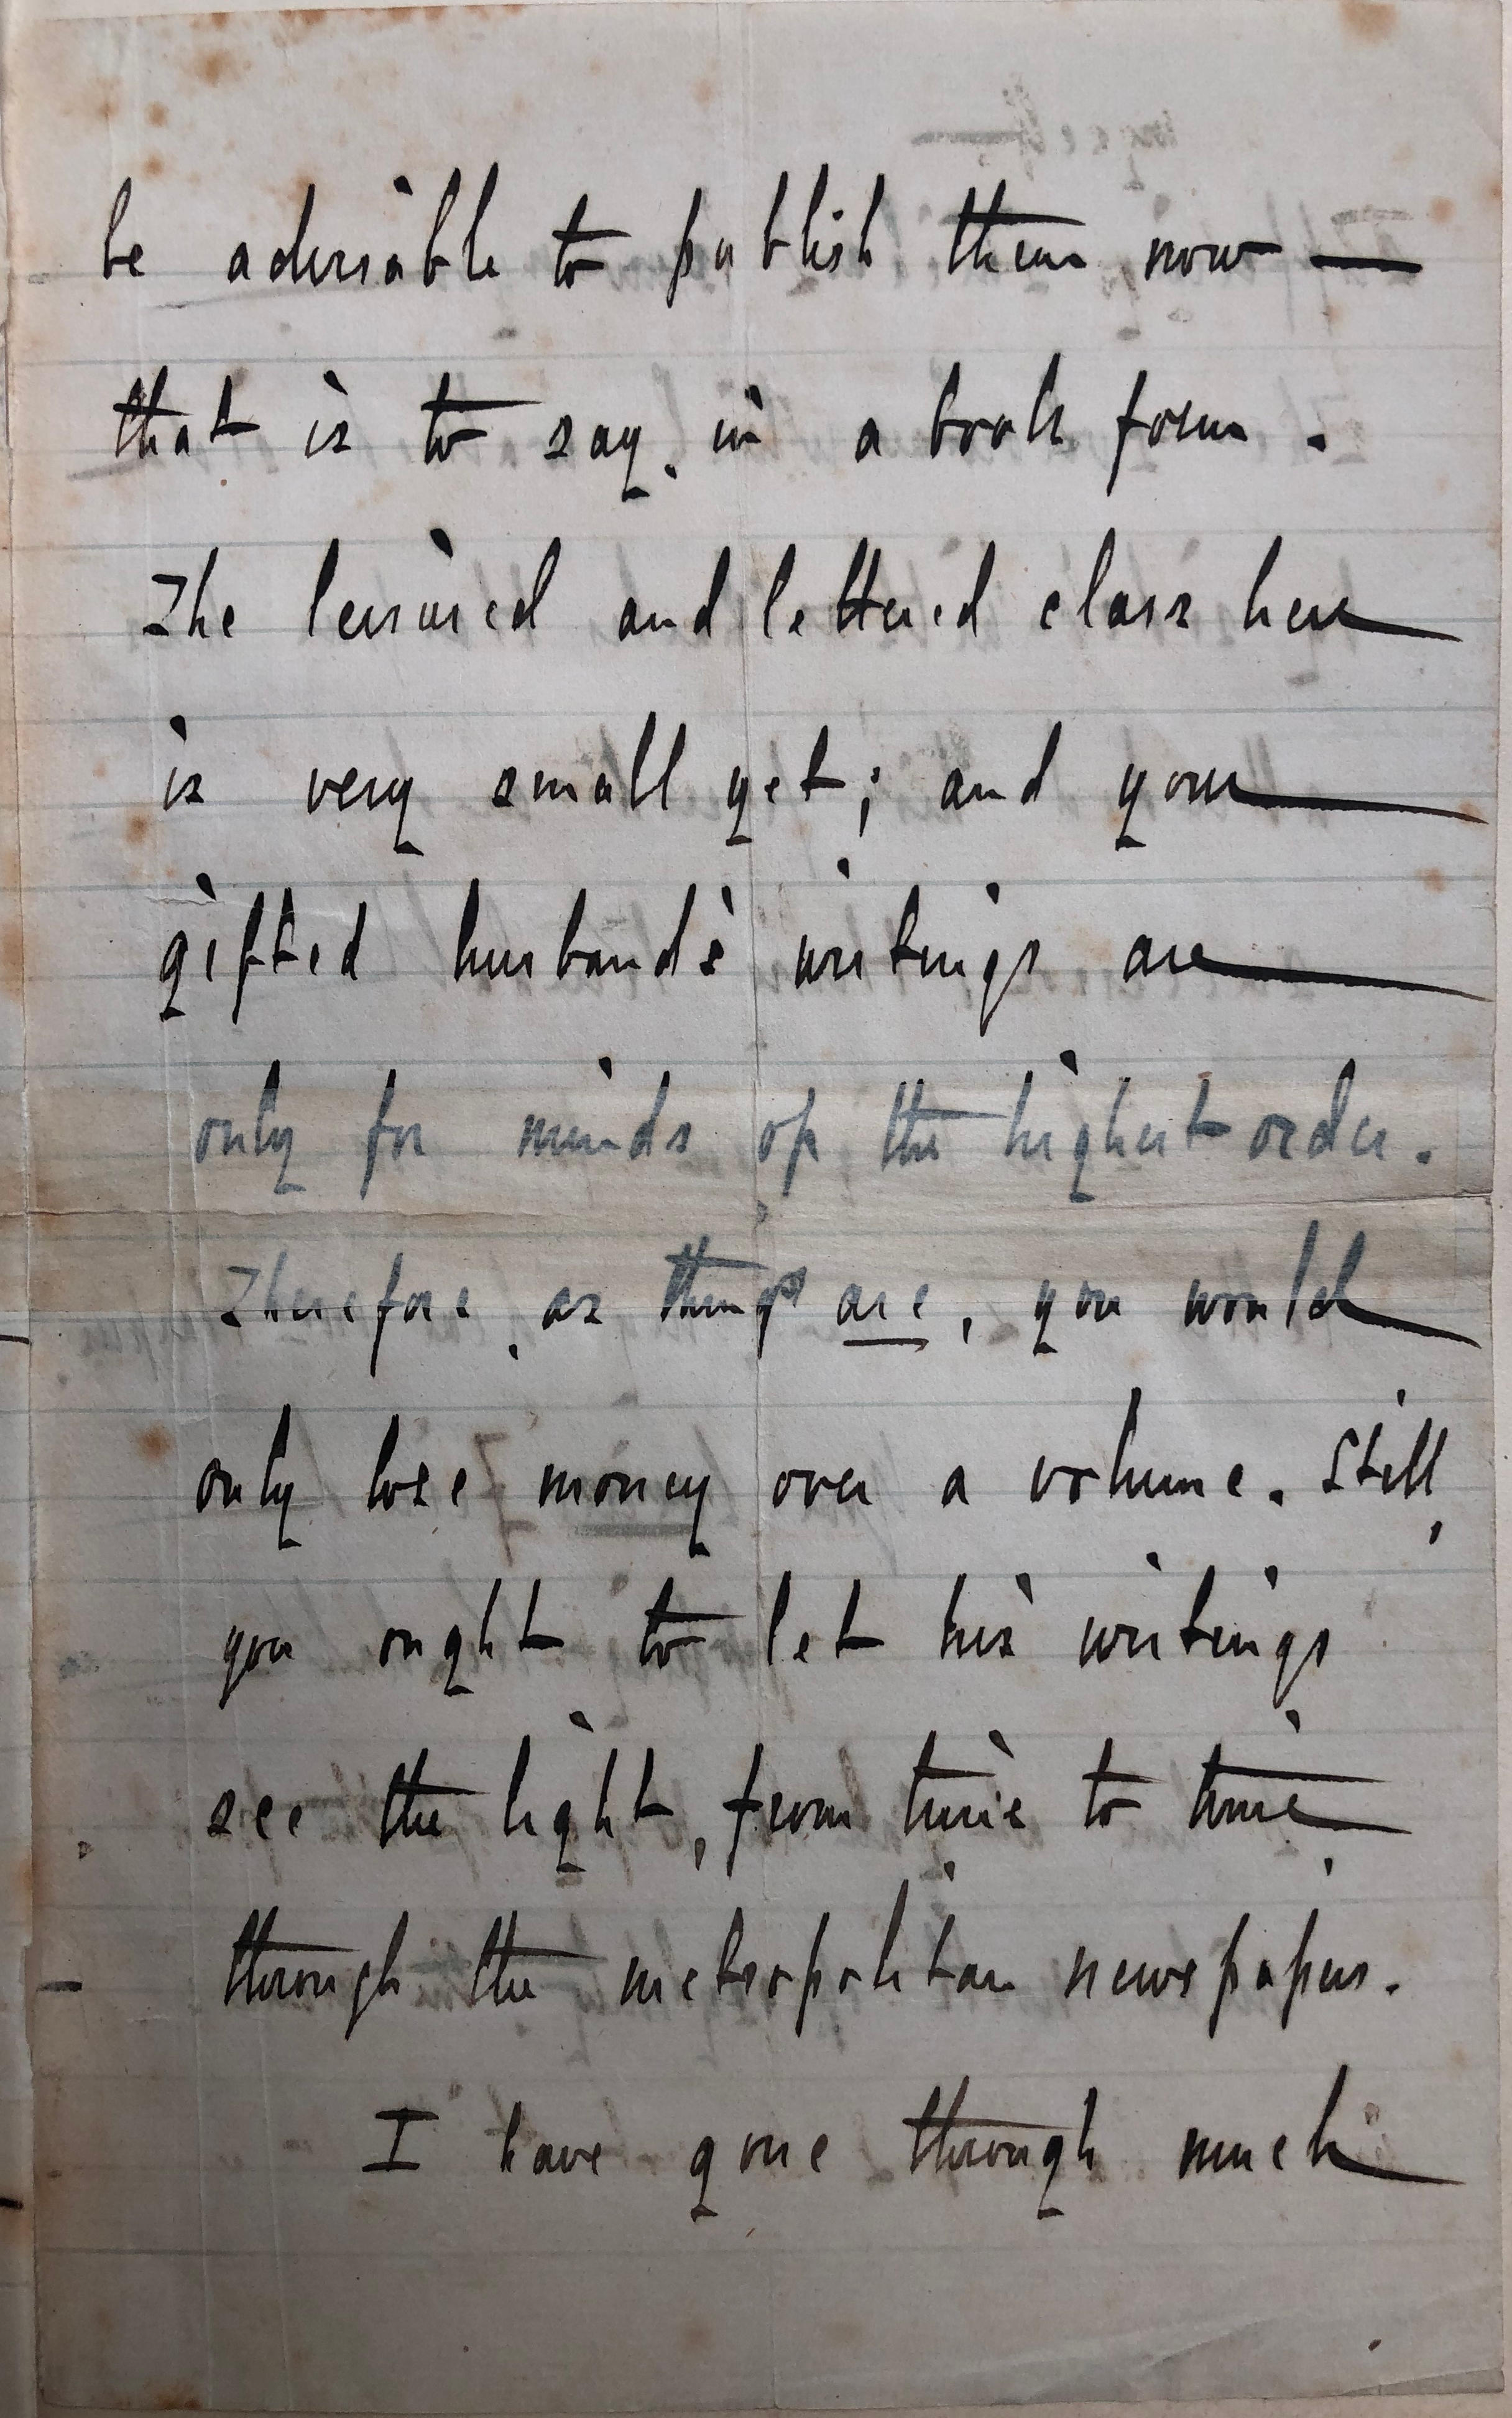 be advisable to publish them now —
that is to say, in a book form.
The leisured and lettered class here
is very small yet; and your
gifted husband's writings are
only for minds of the highest order.
Therefore, as things are, you would
only lose money over a volume. Still,
you ought to let his writings
see the light, from time to time,
through the metropolitan newspapers.
I have gone through much